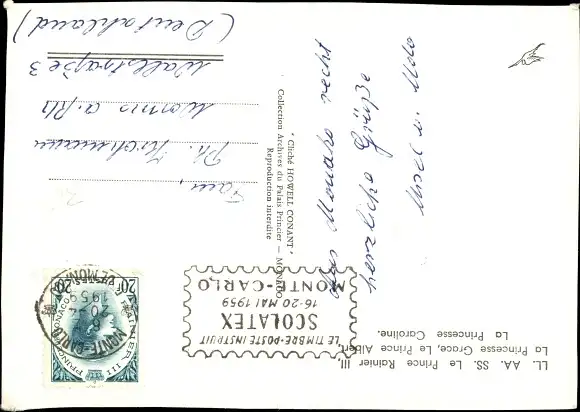 LL. AA. SS. Le Prince Rainier III,
La Princesse Grace, Le Prince Albert,
La Princesse Caroline.
LE TIMBRE-POSTE INSTRUIT
SCOLATEX
16-20 MAI 1959
MONTE-CARLO
MONTE-CARLO
20-4
1959
RAINIER III
PRINCE
MONACO
20
20
"Cliché HOWELL CONANT"
Collection Archives du Palais Princier — MONACO
Reproduction interdite
Aus Monako recht
herzliche Grüße
Udo
Fam.
Ph.
Worms a. Rh
Wallstraße 3
(Deutschland)